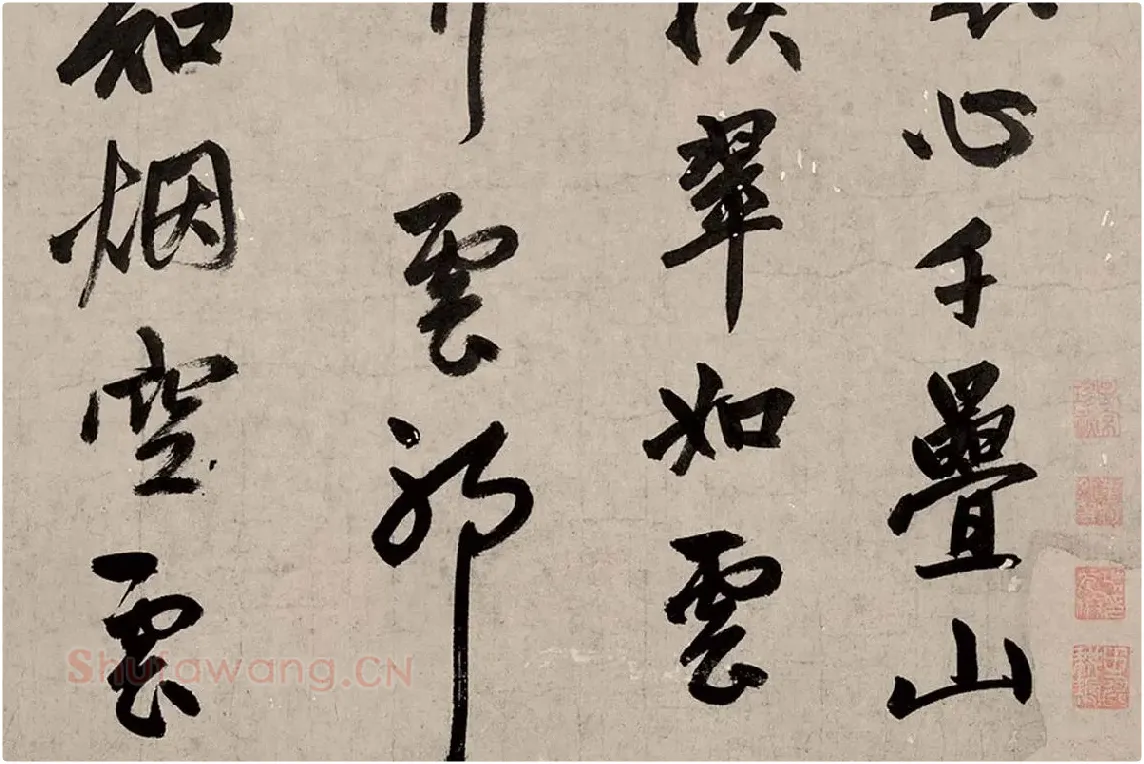 心千疊山
翠如雲
雲耶
知烟空雲
Shufawang.CN